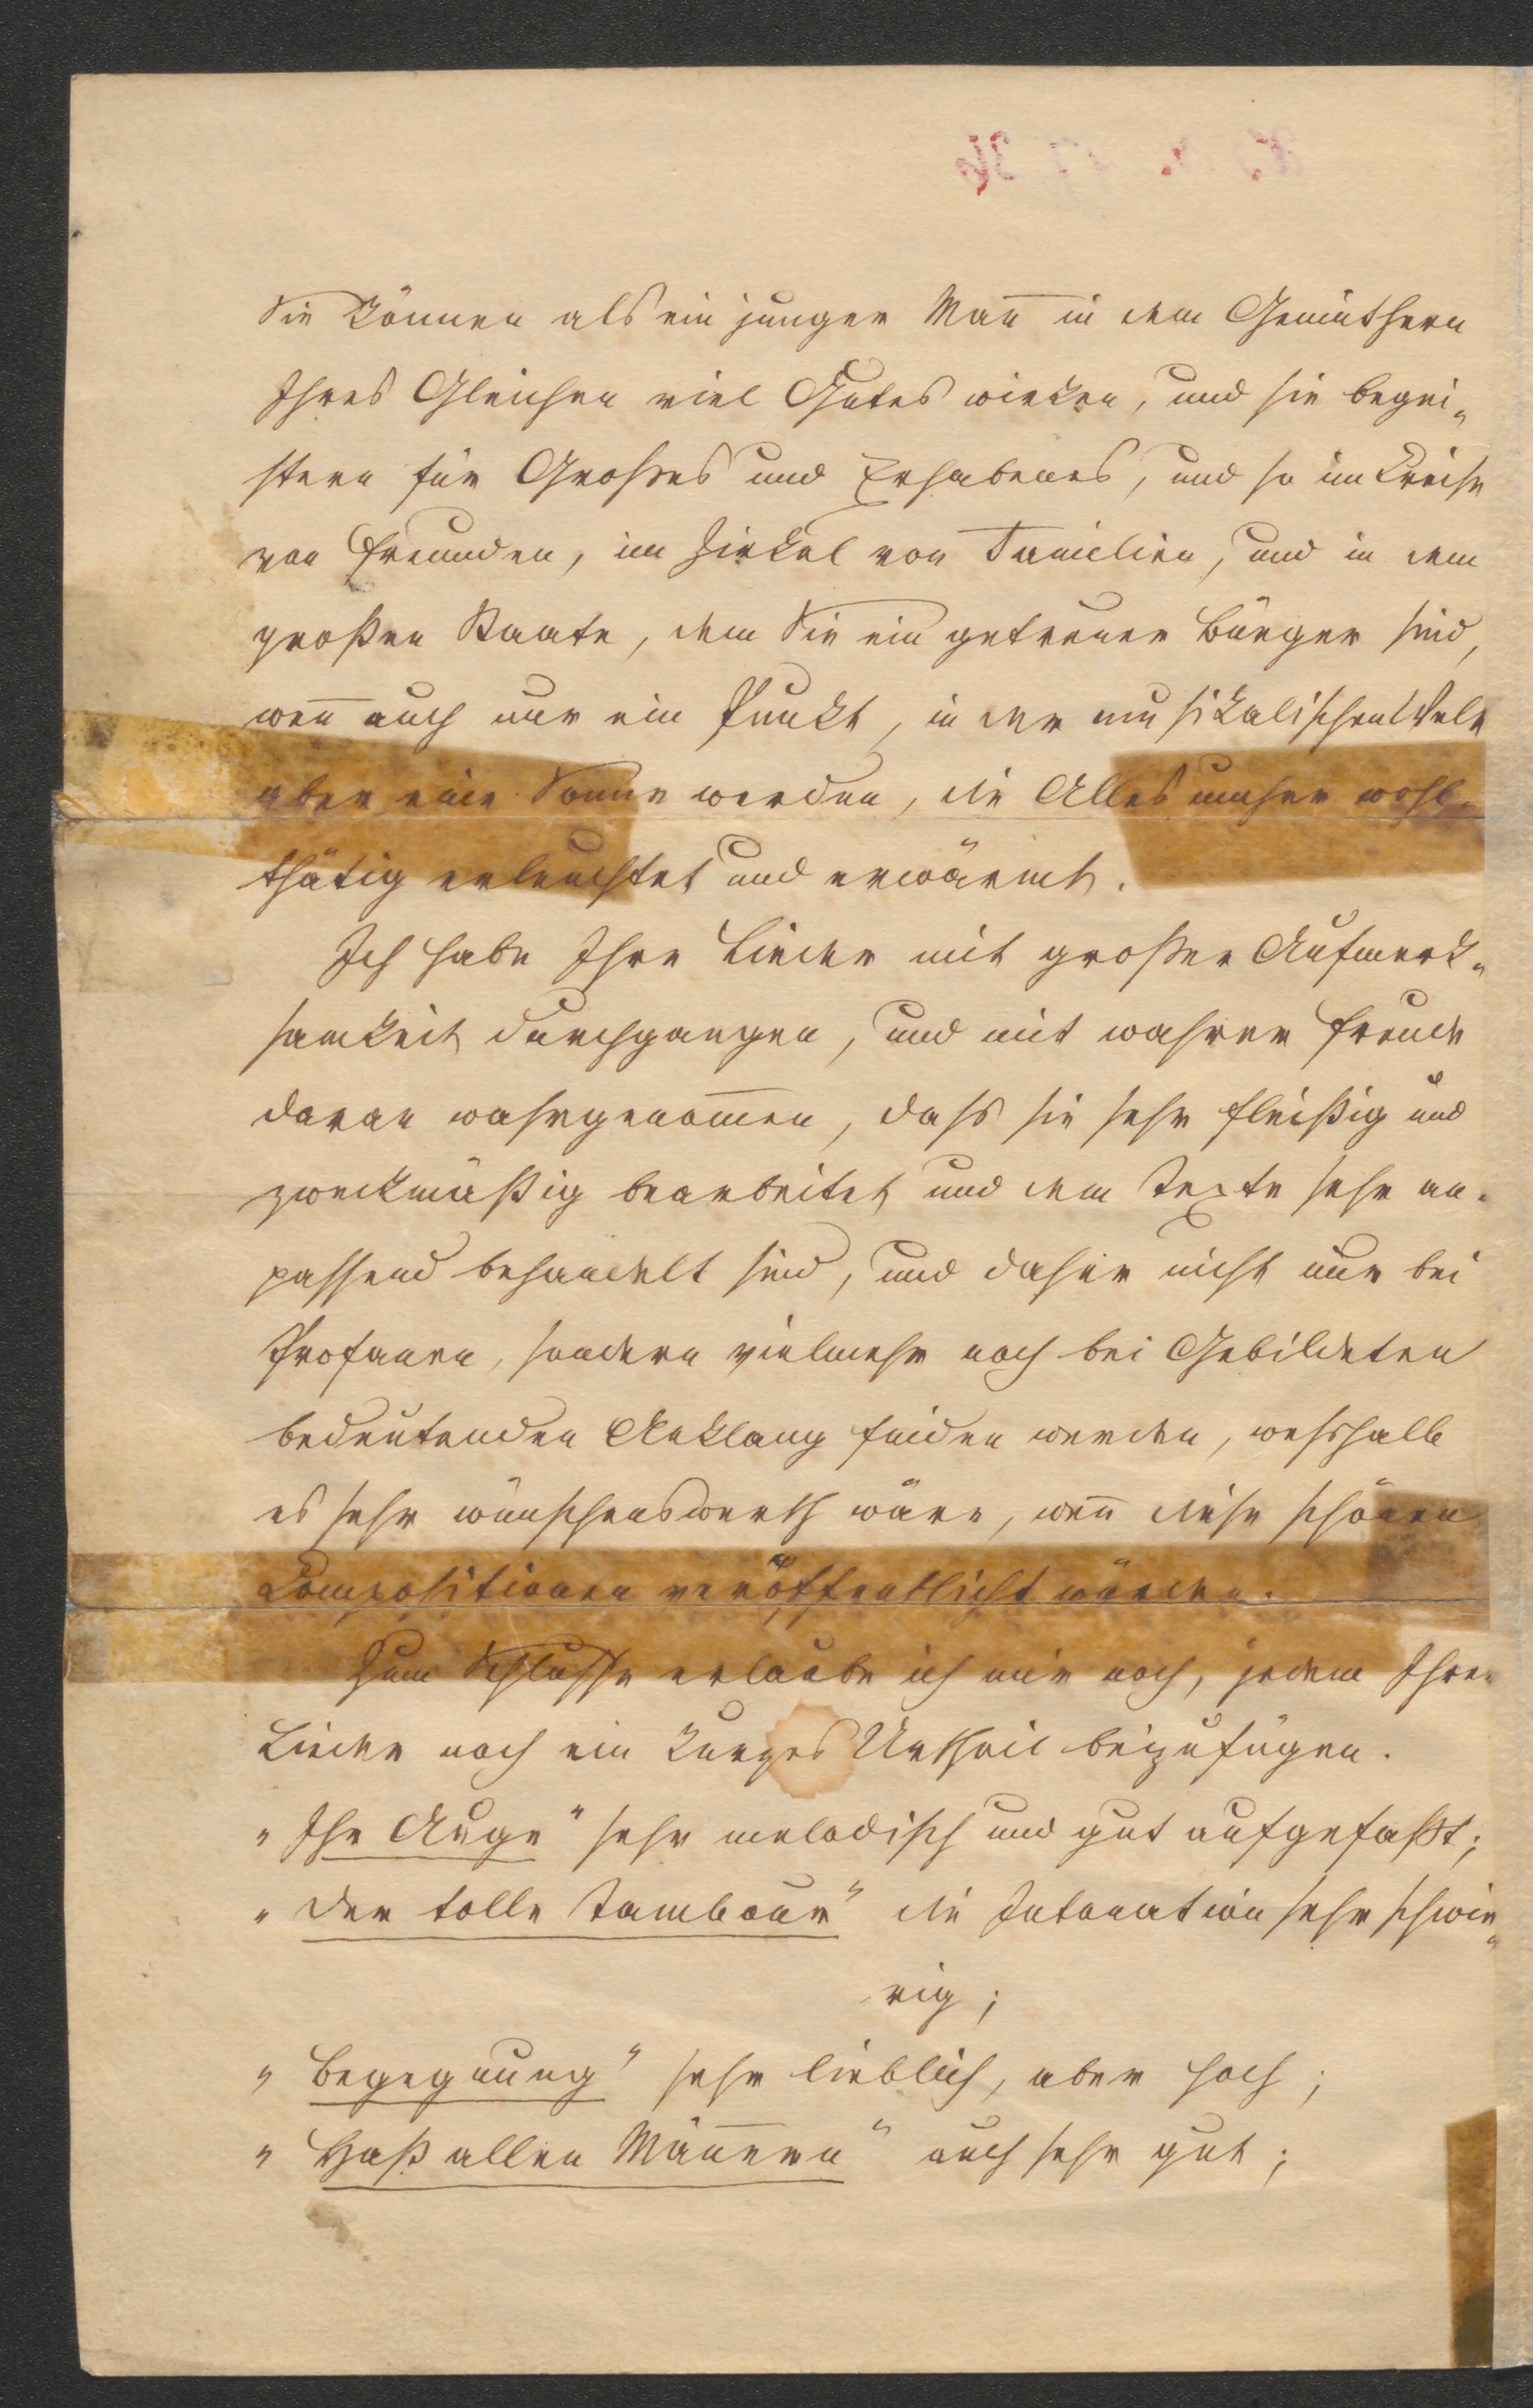 Sie können als ein junger Mañ in dem Gemüthern
Ihres Gleichen viel Gutes wirken, und sie begei„
stern für Großes und Erhabenes, und so im Kreise
von Freunden, im Zirkel von Familien, und in dem
großen Staate, dem Sie ein getreuer Bürger sind,
weñ auch nur ein Punkt, in der musikalischen Welt
aber eine Sonne werden, die Alles umher wohl„
thätig erleuchtet und erwärmt.
Ich habe Ihre Lieder mit großer Aufmerk„
samkeit durchgangen, und mit wahrer Freude
daran wahrgenom̄en, daß sie sehr fleißig und
zweckmäßig bearbeitet und dem Texte sehr an„
passend behandelt sind, und daher nicht nur bei
Profanen, sondern vielmehr noch bei Gebildeten
bedeutenden Anklang finden werden, weßhalb
es sehr wünschenswerth wäre, weñ diese schönen
Compositionen veröffentlicht würden.
Zum Schlusse erlaube ich mir noch, jedem Ihrer
Lieder noch ein kurzes Urtheil beizufügen.
„Ihr Auge" sehr melodisch und gut aufgefaßt;
„der tolle Tambour" die Intonation sehr schwie„
rig;
„Begegnung" sehr lieblich, aber hoch;
„Haß allen Mäñern" auch sehr gut;